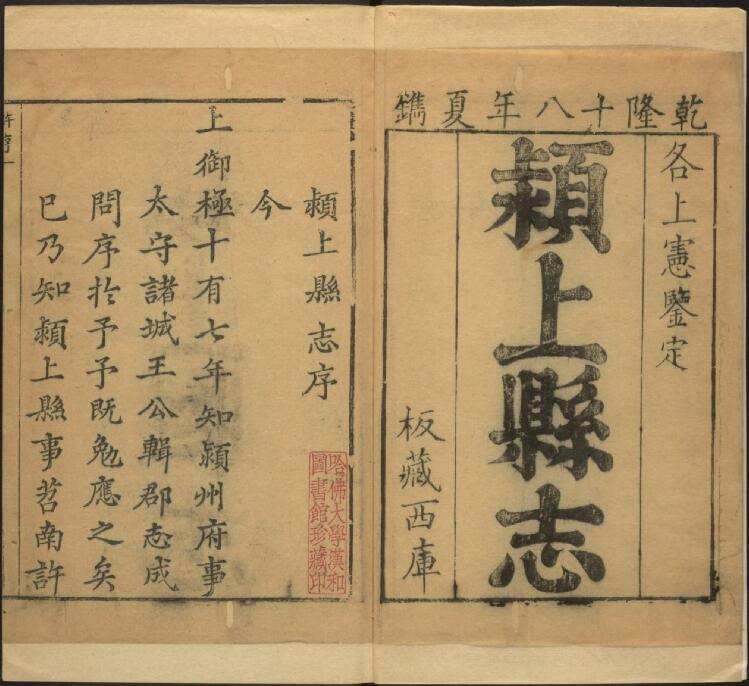 乾隆十八年夏鐫
各上憲鑒定
潁上縣志
板藏西庫
潁上縣志序
今
上御極十有七年知潁州府事
太守諸城王公輯郡志成
問序於予予既勉應之矣
巳乃知潁上縣事苕南許
許序一
哈佛大學漢和
圖書館珍藏印